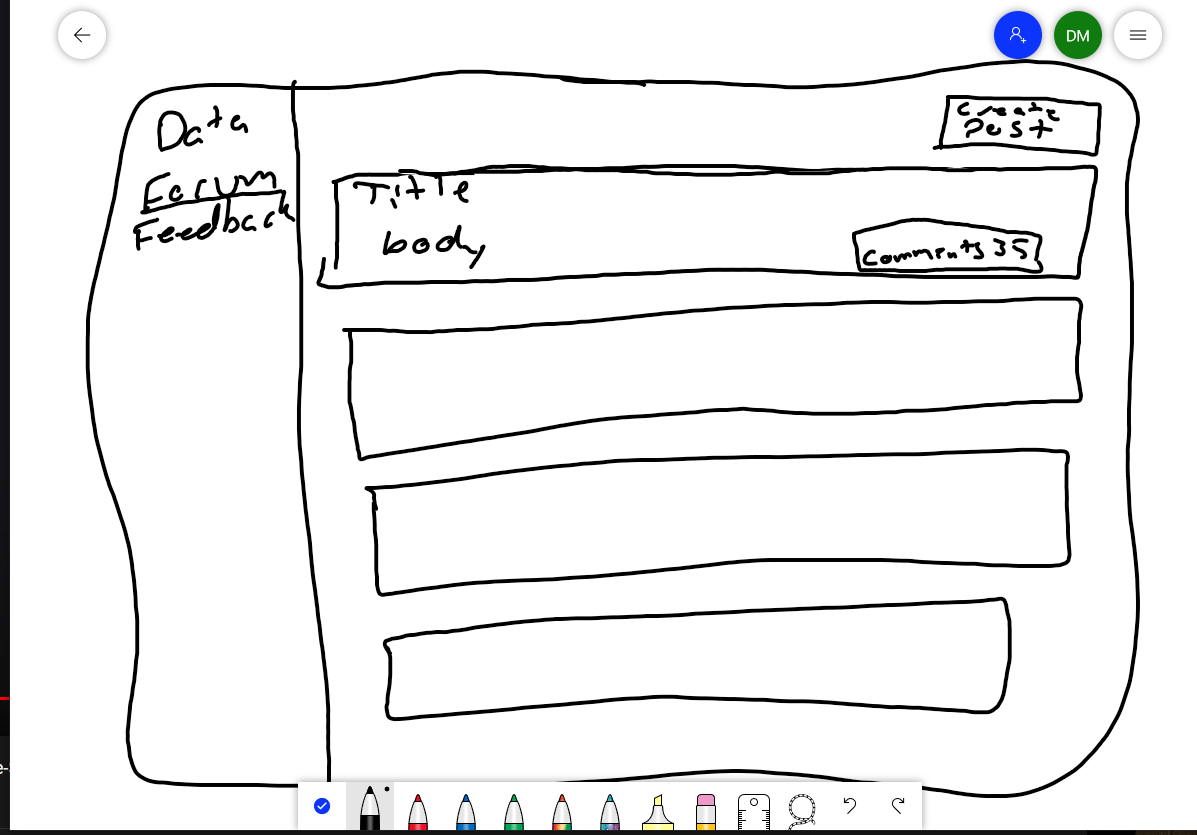 DM
Data
Forum
Feedback
Create
Post
Title
body
Comments 35